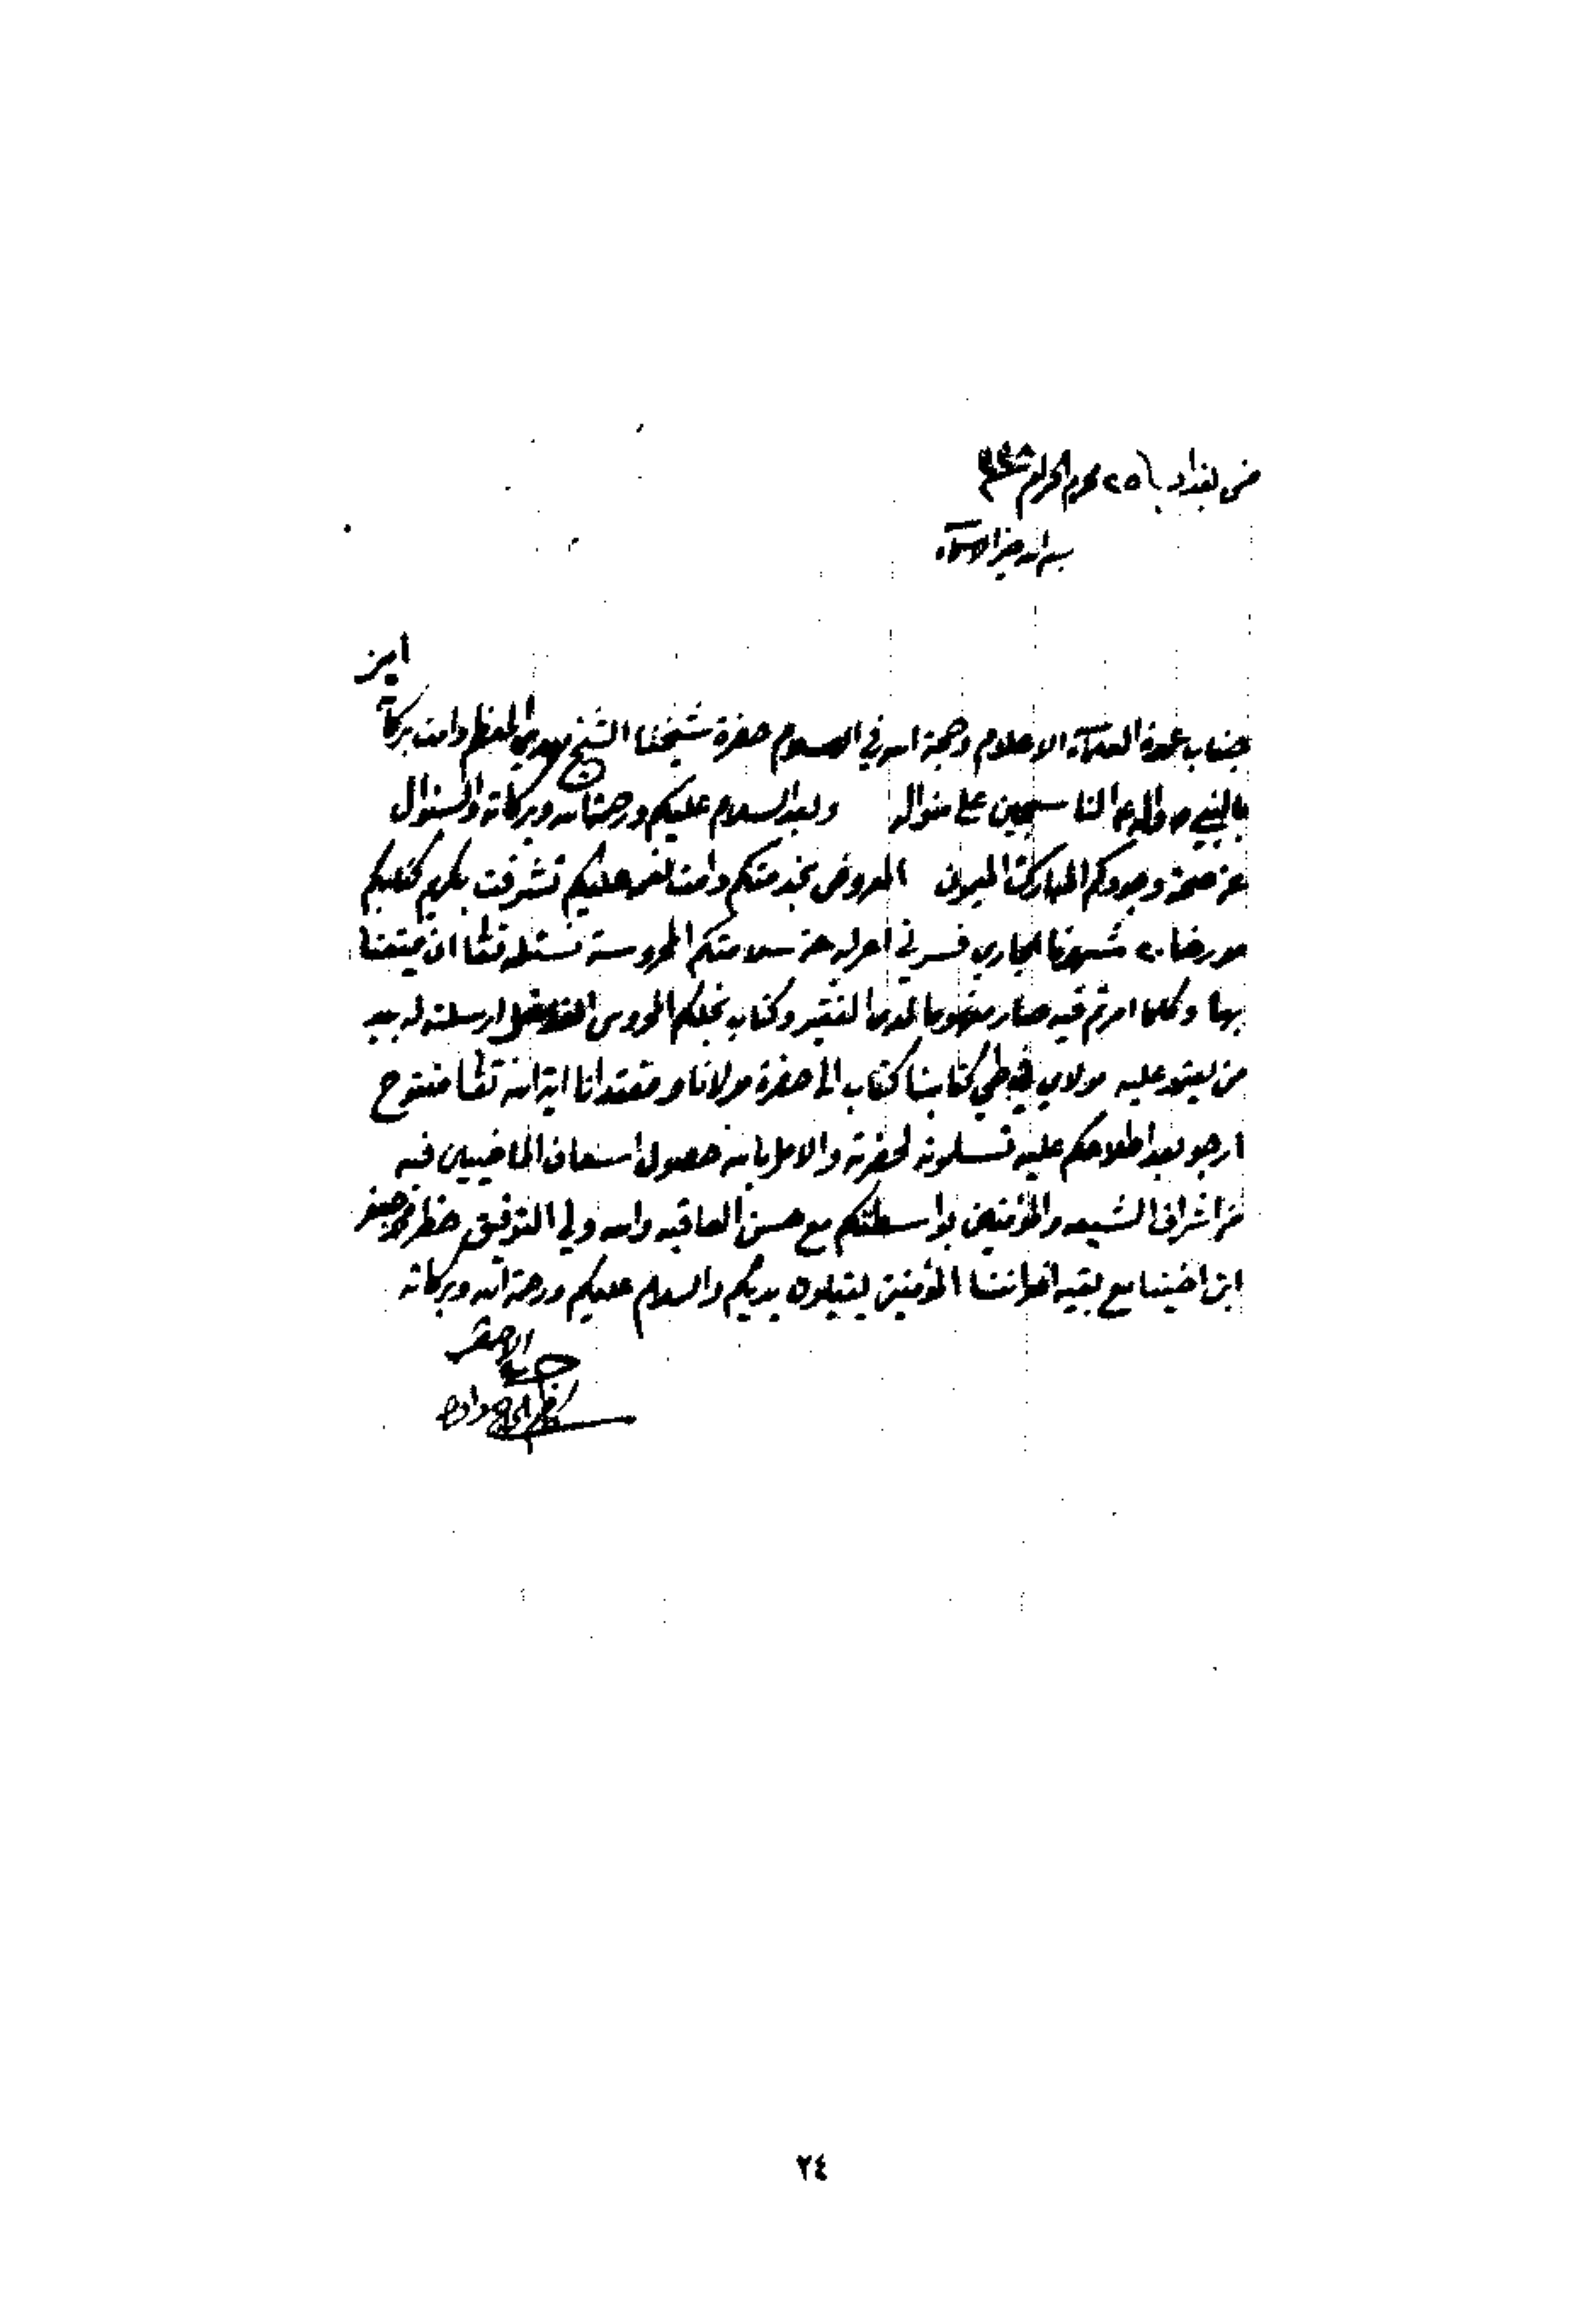 من بغداد ٢٥ محرم الحرام
بسم الله خير الاسماء
جناب عمدة العلماء الاعلام وحجة الله في الاسلام حضرة شيخنا الشيخ مهدي المعظم دامت بركاته
بالنبي واله الناسجين على منواله وبعد السلام عليكم ورحمة الله وبركاته والسئوال
عن صحة وجودكم المبارك الميمون المعروض بخدمتكم دامت نعم عليكم تشرفت بكريم كتابكم
مورخا ٢٠ شهرنا الجاري فسرني اعرابه عن سلامتكم المحروسة نسئله تعالى ان يمتعنا
بها وكلما امرتم فيه صار مفهوما لدى الفقير وكتاب نجلكم المحروس ارسلته له بيد
من يعتمد عليه مولاي في طي كتابنا كتاب الى حضرة مولانا ومقتدانا اية الله تعالى مفتوح
ارجو بعد اطلاعكم عليه تسلمونه لحضرته والامل بالله حصول اسعاف الماضيين فيه
من اشراف الشيعه والمؤمنين بواسطتكم مع حسن العاقبه والله ولي التوفيق جعفر
ابن اخينا مع بقيه اخواننا المؤمنين يقبلون يديكم والسلام عليكم ورحمة الله وبركاته
الاحقر
الحاج داود
٢٤